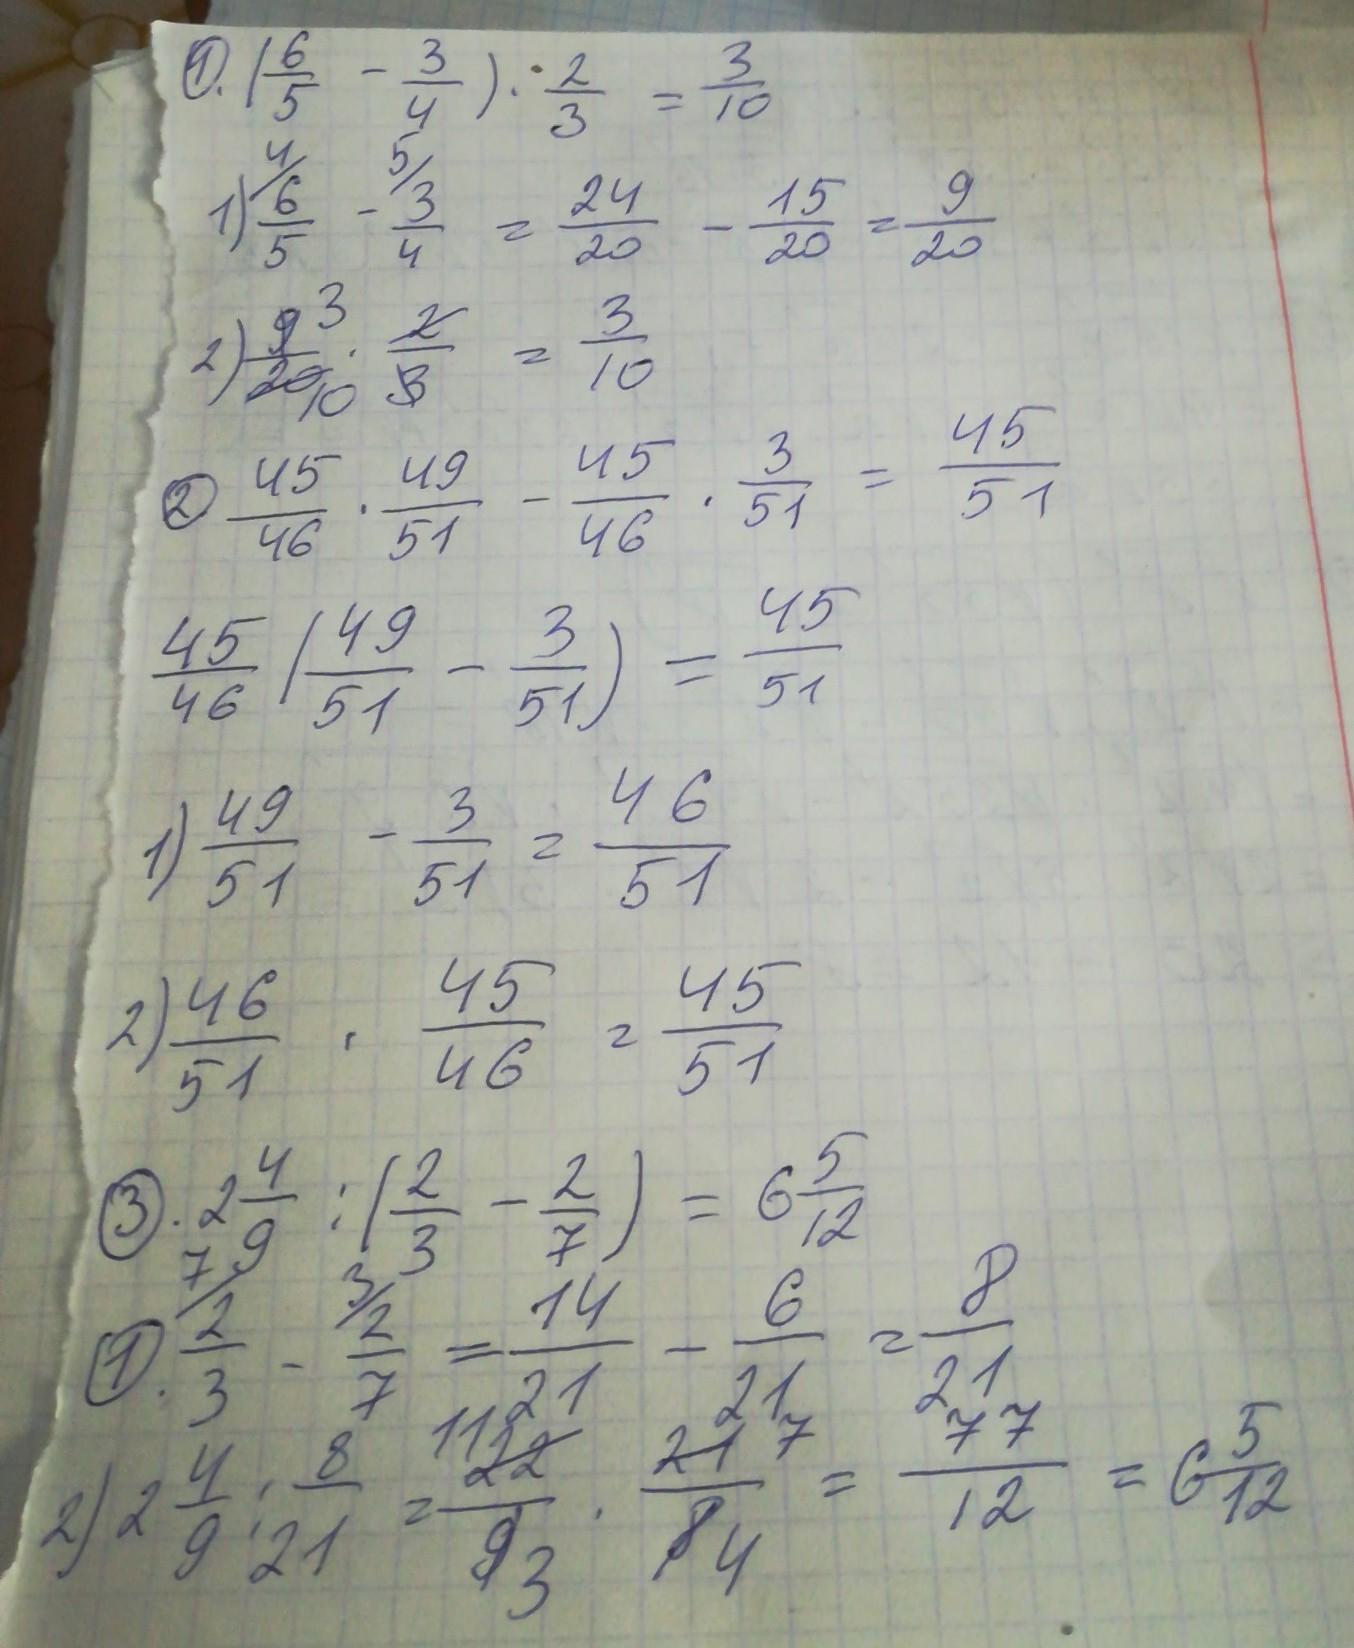 ①. (6/5 - 3/4) · 2/3 = 3/10
1) 4/ 6/5 - 5/ 3/4 = 24/20 - 15/20 = 9/20
2) 9 3/20 10 · 2/3 = 3/10
② 45/46 · 49/51 - 45/46 · 3/51 = 45/51
45/46 (49/51 - 3/51) = 45/51
1) 49/51 - 3/51 = 46/51
2) 46/51 · 45/46 = 45/51
③. 2 4/9 : (2/3 - 2/7) = 6 5/12
①. 7/ 2/3 - 3/ 2/7 = 14/21 - 6/21 = 8/21
2) 2 4/9 : 8/21 = 11 22/9 3 · 21 7/8 4 = 77/12 = 6 5/12